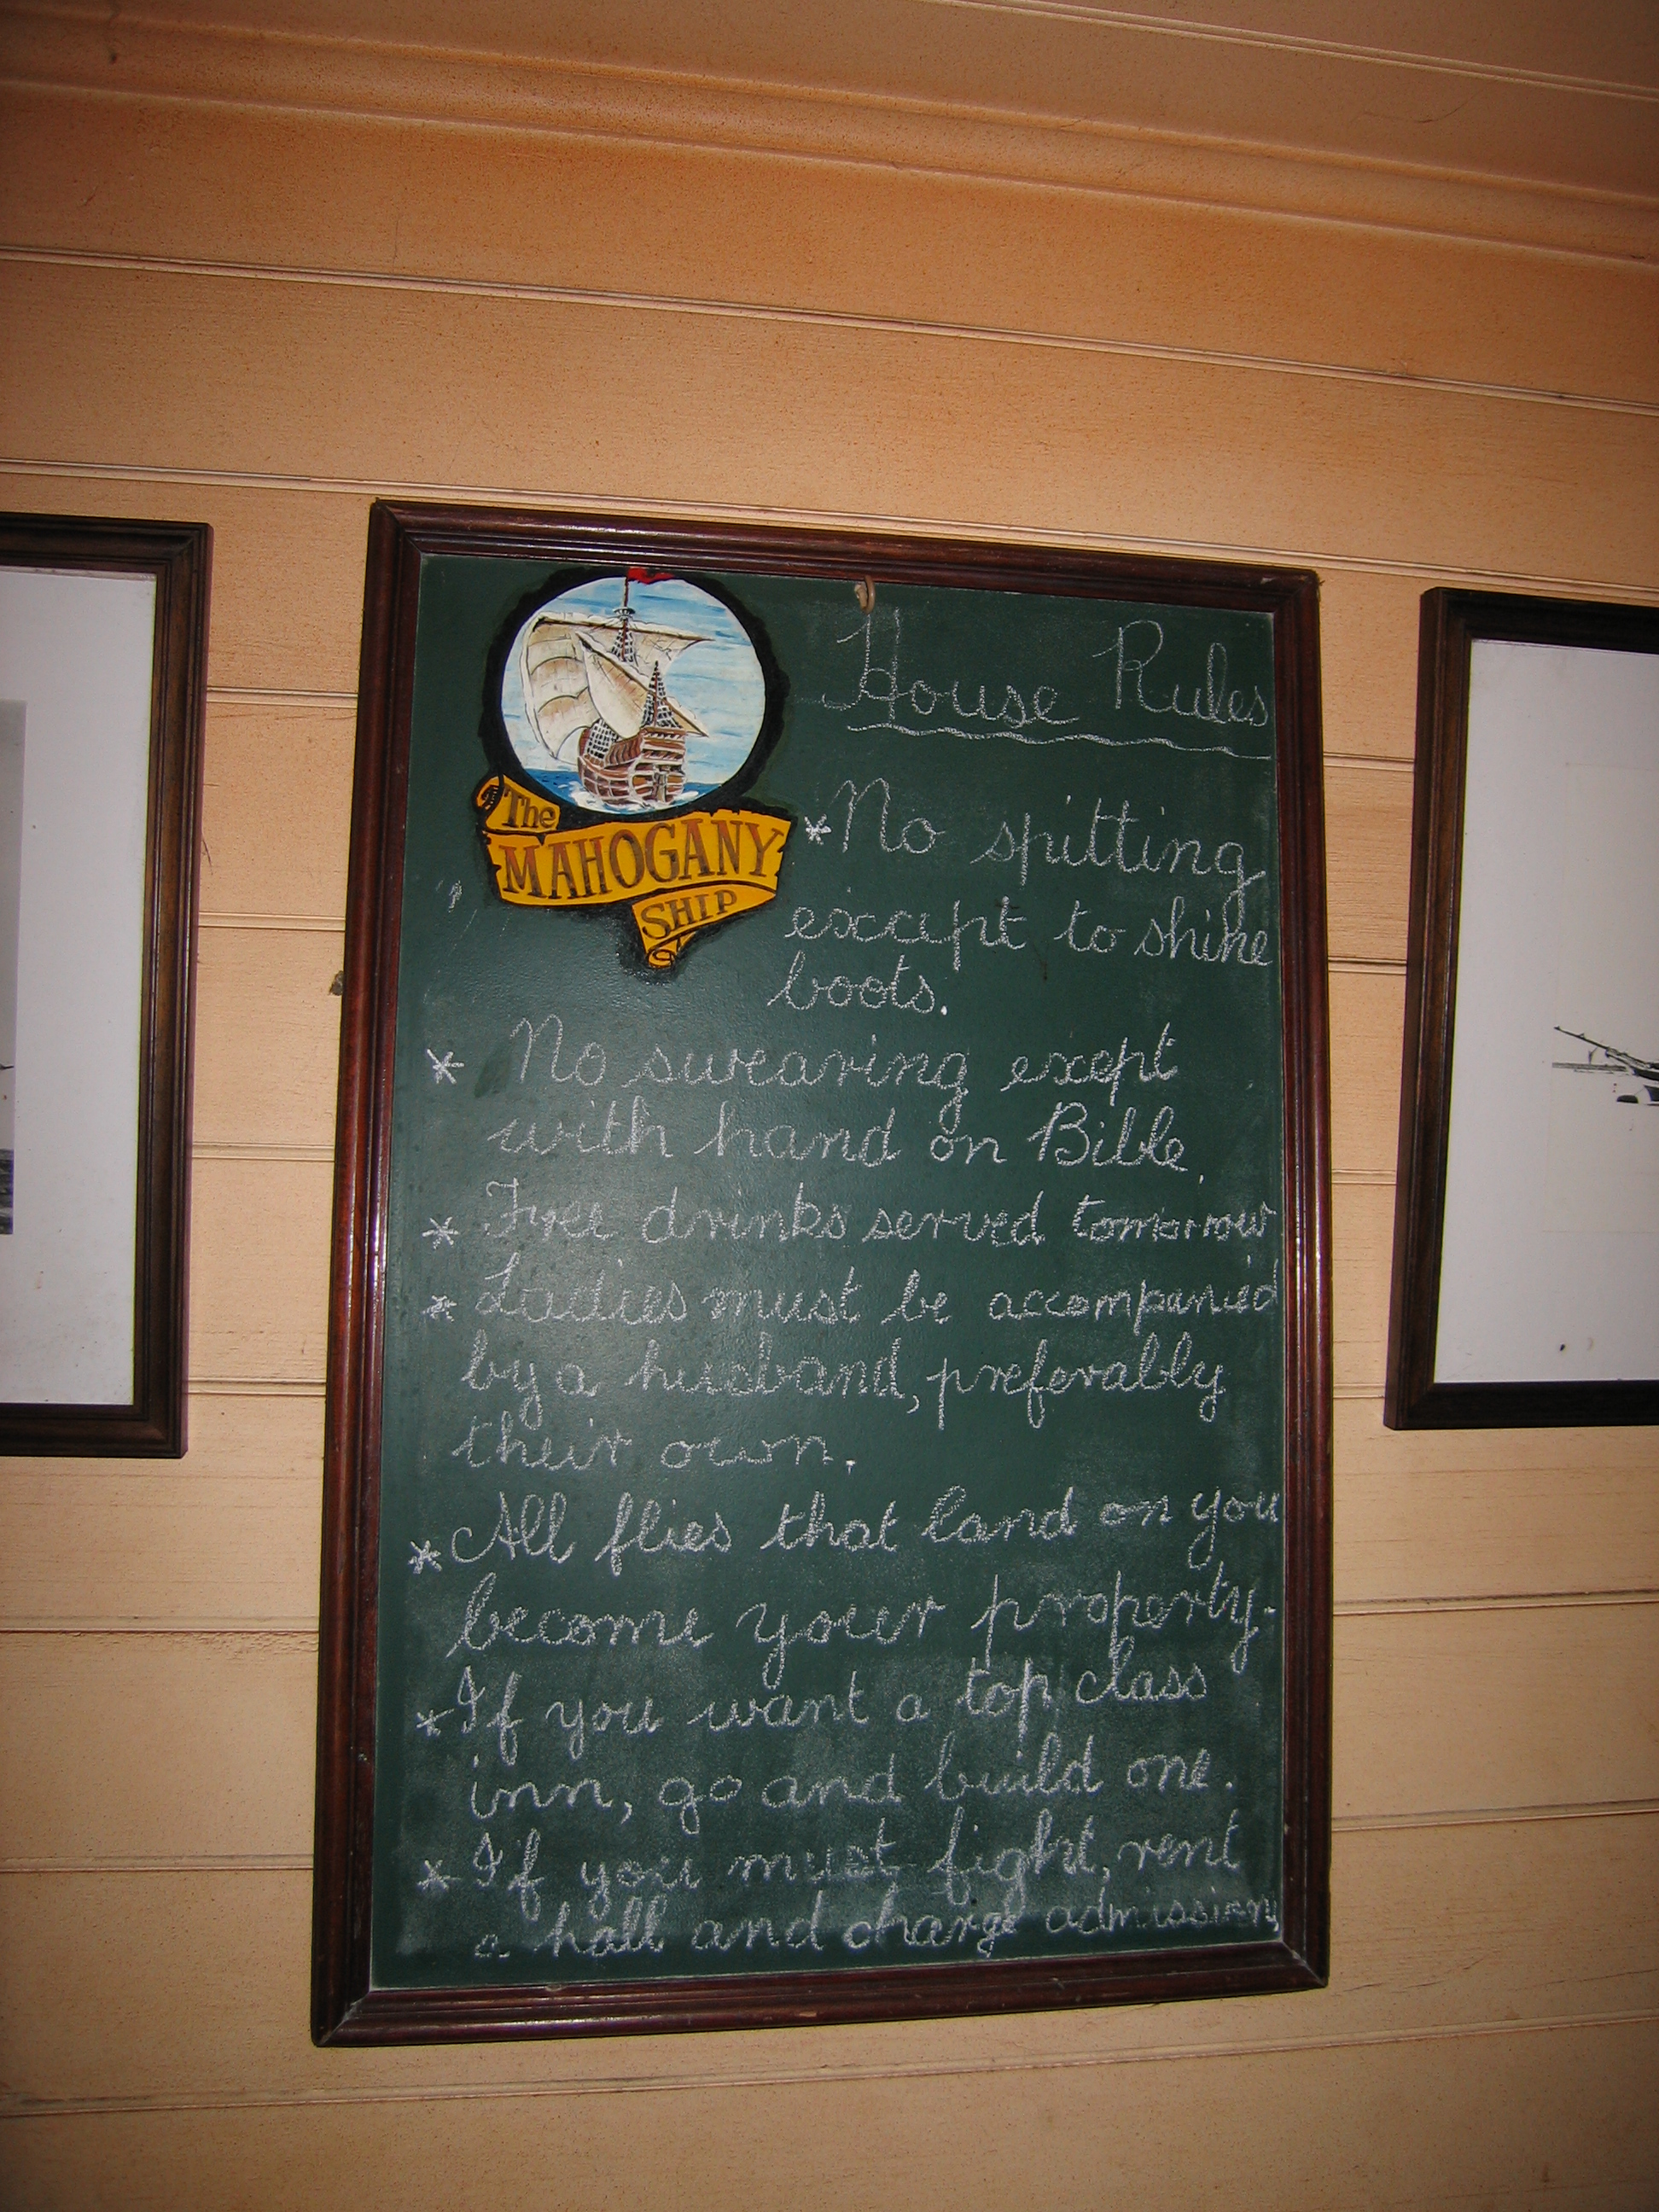 The
MAHOGANY
SHIP
House Rules
*No spitting
except to shine
boots.
* No swearing except
with hand on Bible.
* Free drinks served tomorrow
* Ladies must be accompanied
by a husband, preferably
their own.
* All flies that land on you
become your property.
* If you want a top class
inn, go and build one.
* If you must fight, rent
a hall and charge admission